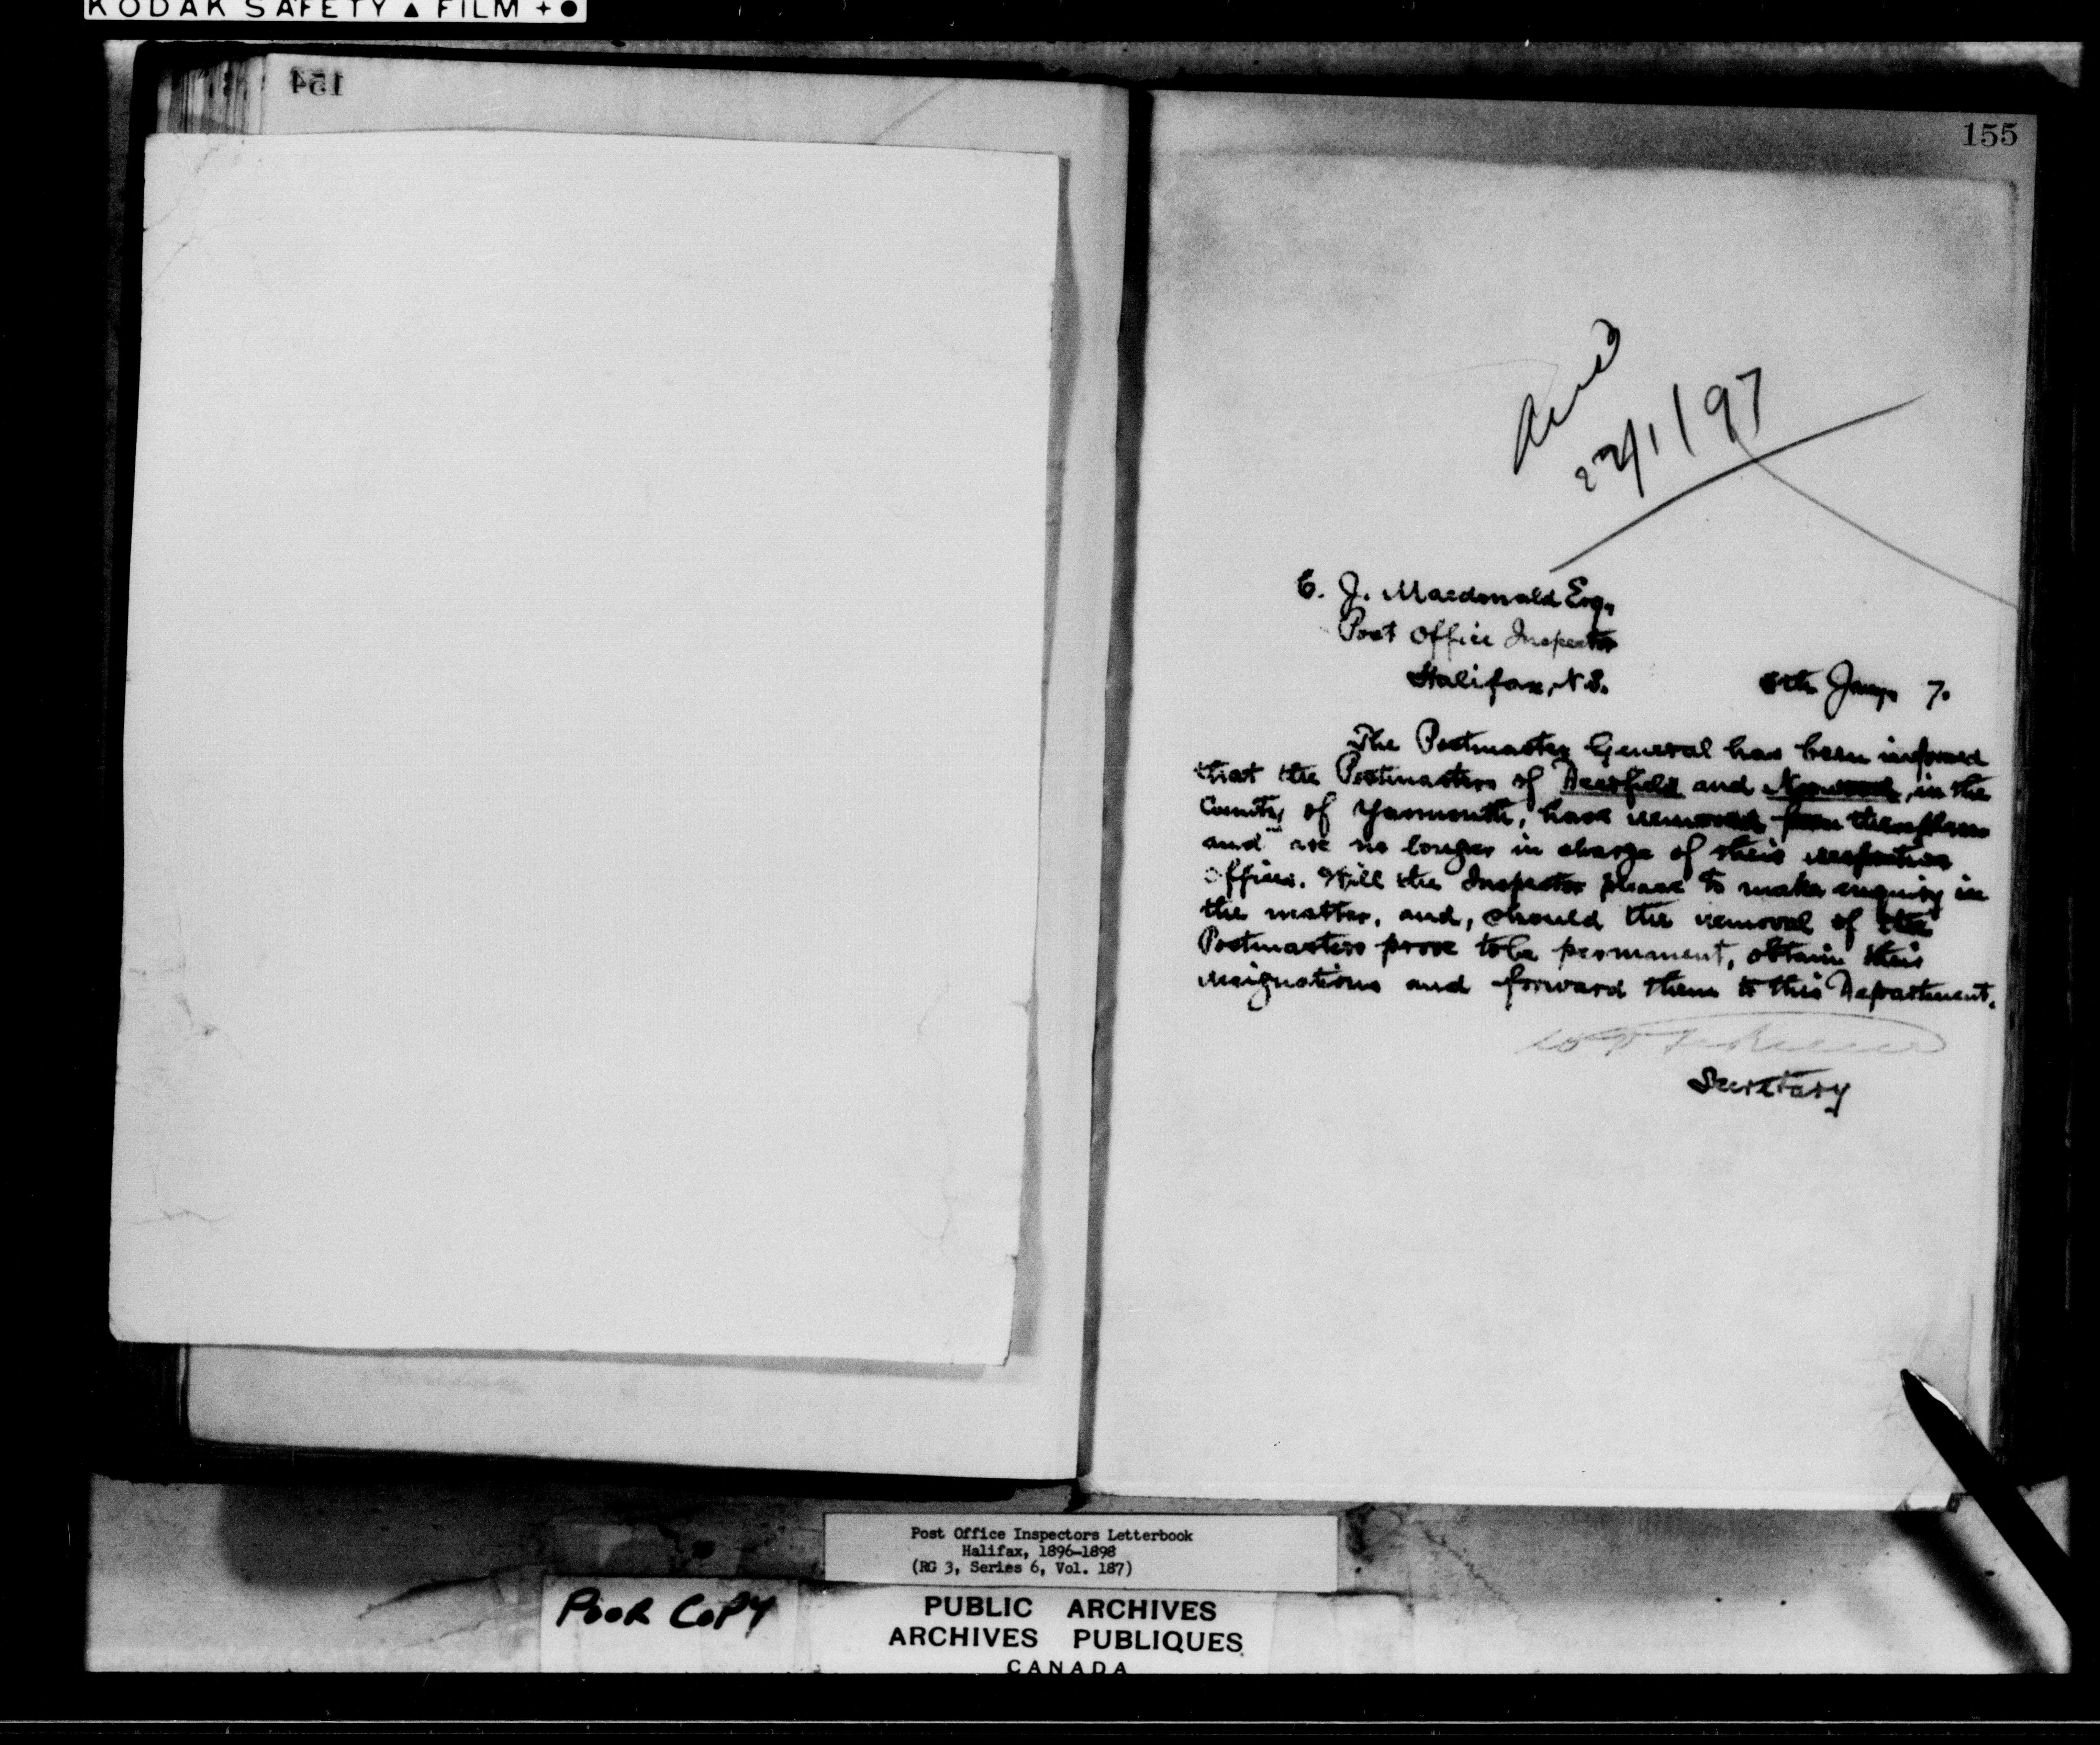 KODAK SAFETY ▲ FILM
154
155
Ansd
22/1/97
C. J. Macdonald Esq.,
Post Office Inspector
Halifax, N.S.
8th Jany. 7.
The Postmaster General has been informed
that the Postmasters of Deerfield and Norwood, in the
County of Yarmouth, have removed from therefrom
and are no longer in charge of their respective
offices. Will the Inspector please to make enquiry in
the matter, and, should the removal of the
Postmasters prove to be permanent, obtain their
resignations and forward them to this Department.
Secretary
Post Office Inspectors Letterbook
Halifax, 1896-1898
(RG 3, Series 6, Vol. 187)
POOR COPY
PUBLIC ARCHIVES
ARCHIVES PUBLIQUES
CANADA